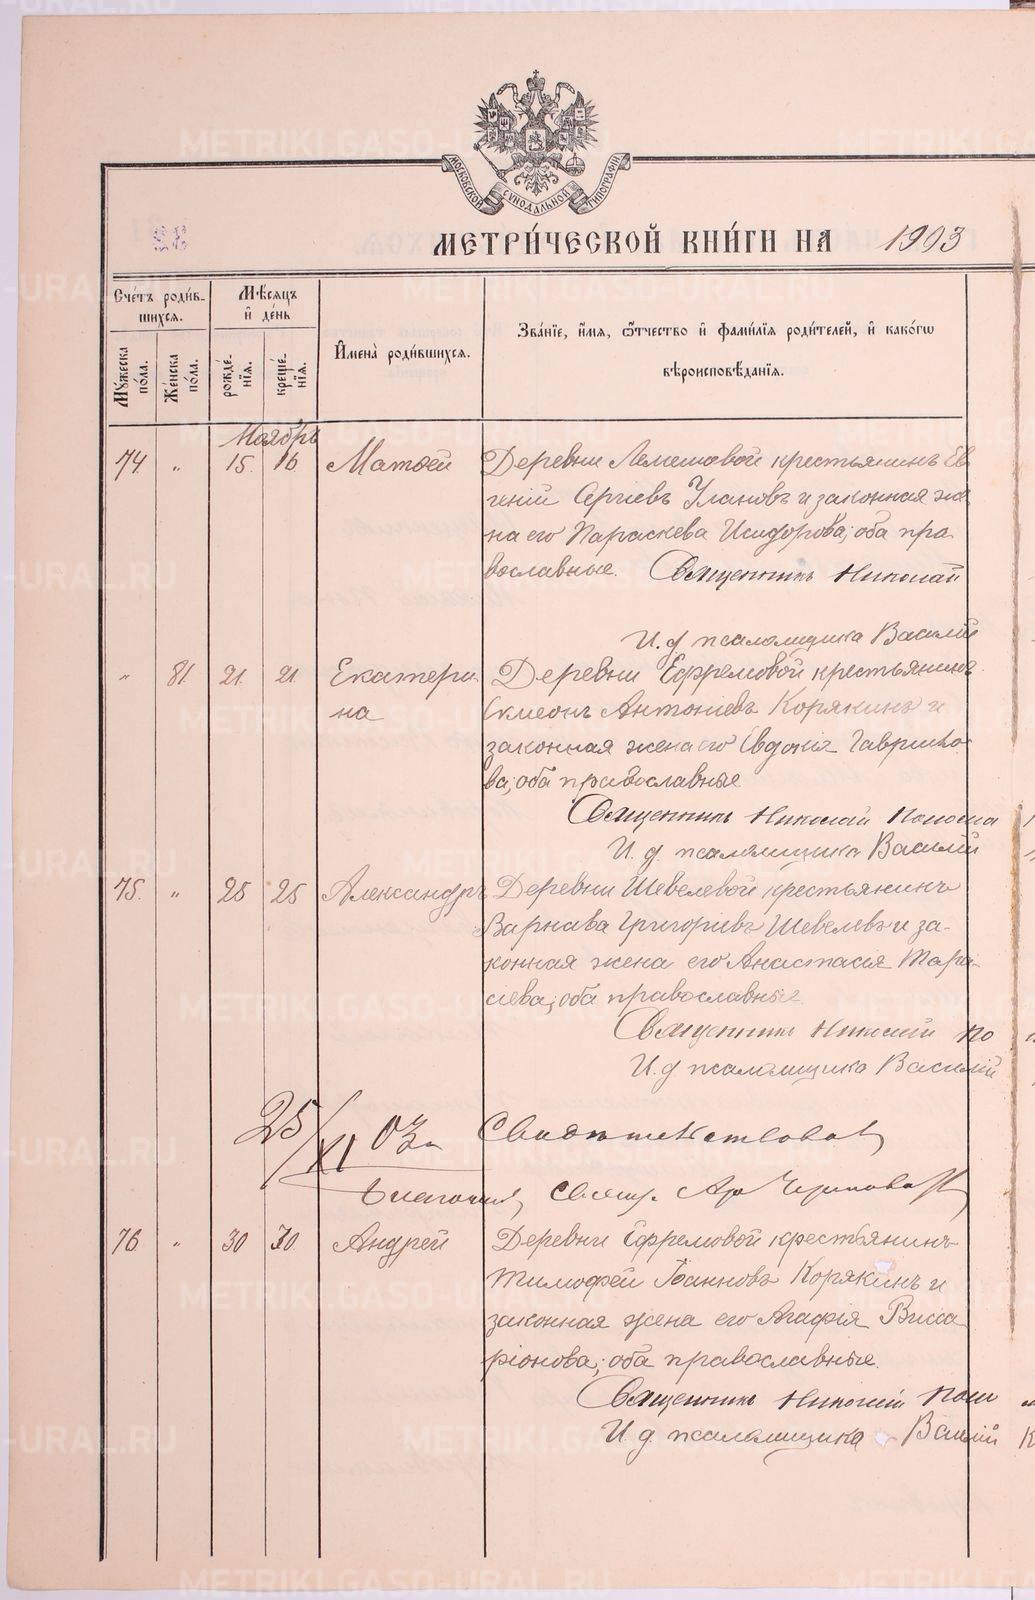 МОСКОВСКОЙ СѴНОДАЛЬНОЙ ТИПОГРАФІИ
МЕТРИ́ЧЕСКОЙ КНИ́ГИ НА 1903
Сче́тъ роди́в-
шихся.
Мѣ́сяцъ
и҆ де́нь
И҆мена̀ роди́вшихся.
Зва́нїе, и҆́мя, ѻ҆́тчество и҆ фами́лїя роди́телей, и҆ како́гѡ
вѣроисповѣ́данїя.
Му́жеска
по́ла.
Же́нска
по́ла.
рожде́-
нїя.
креще́-
нїя.
Ноябрь
74 " 15. 16 Матѳей Деревни Лемешовой крестьянинъ Ев
геній Сергіевъ Улановъ и законная же
на его Параскева Исидорова; оба пра
вославные. Священникъ Николай
И. д псаломщика Василій
" 81. 21. 21 Екатери Деревни Ефремовой крестьянинъ
на Симеонъ Антоніевъ Корякинъ и
законная жена его Евдокія Гаврило
ва; оба православные
Священникъ Николай
И. д. псаломщика Василій
75. " 25 25 Александръ Деревни Шевелевой крестьянинъ
Варнава Григоріевъ Шевелевъ и за-
конная жена его Анастасія Тара-
сіева; оба православные.
Священникъ Николай По
И. д псаломщика Василій
25/XI 03 г. Свидѣтельствовалъ
76. " 30 30. Андрей Деревни Ефремовой крестьянинъ
Тимофей Іоанновъ Корякинъ и
законная жена его Агафія Висса
ріонова; оба православные.
Священникъ Николай
И. д. псаломщика Василій
METRIKI.GASO-URAL.RU